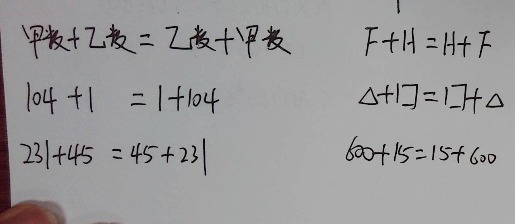 甲数+乙数=乙数+甲数
F+H=H+F
104+1=1+104
△+口=口+△
231+45=45+231
600+15=15+600